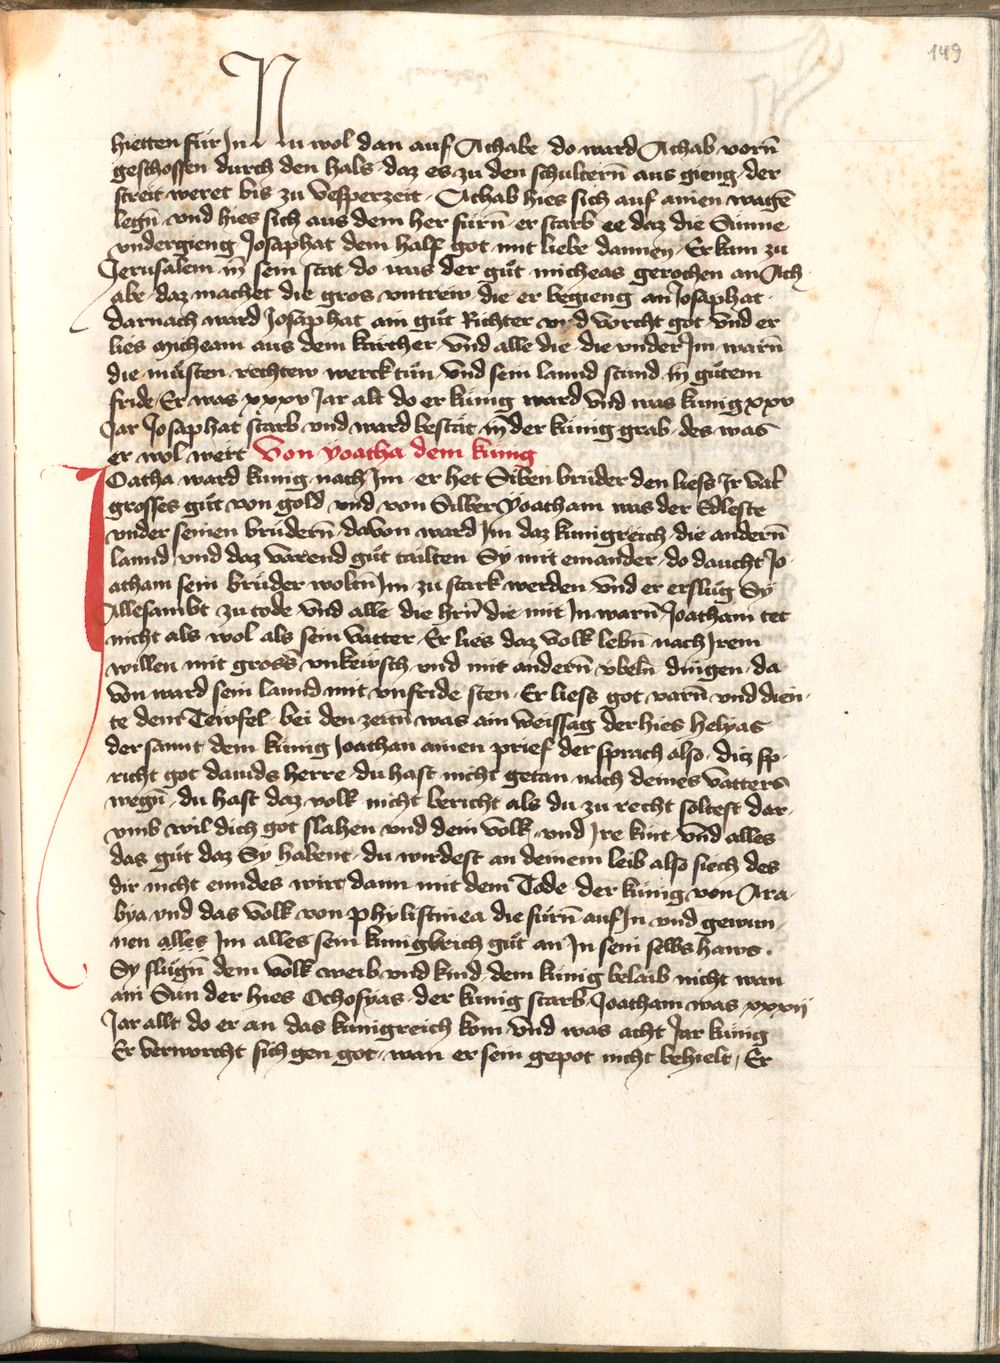 149
hietten für In Nu wol dan auf Achabe · do ward Achab vorn̄
geschossen durch den hals · daz es zu den schultern̄ aus gieng · der
streit weret bis zu Vesperzeit · Achab hies sich auf ainen wagē
legn̄ · vnd hies sich aus dem her fürn̄ · er starb ee daz die Sunne
vndergieng Josaphat dem half got mit liebe dannen · Er kam zu
Jerusalem in̄ sein stat · do was der gůt micheas gerochen an Ach
abe · daz machet die gros vntrew · die er begieng an Josaphat ·
darnach ward Josaphat ain gůt Richter vnd vorcht got vnd er
lies Micheam aus dem kärcher · vnd alle die · die vnder Im warn̄
die můsten rechtew werck tůn · vnd sein lannd stund in̄ gůtem
fride · Er was xxxv Jar alt do er künig ward vnd was kunig xxv
Jar Josaphat starb vnd ward bestät in̄ der künig grab · des was
er wol wert Von yoatha dem kunig
JOatha ward kunig nach Im · er het Siben brüder den liess Ir vat̄
grosses gůt von gold vnd von Silber Yoatham was der Edleste
vnder seinen brüdern̄ · davon ward Im daz kunigreich · die andern̄
lannd vnd daz varend gůt tailten Sy mit einander · do daucht Jo ·
atham sein brüder woltn̄ Im zu stark werden vnd er erslůg Sy
Allesambt zu tode vnd alle die hrn̄ die mit In warn̄ Joatham tet
nicht als wol als sein vatter · Er lies daz volk lebn̄ nach Irem
willen mit gross̄ vnkewsch vnd mit andern̄ vbeln̄ dingen · da
von ward sein lannd mit vnfride sten · Er liess got varn̄ vnd dien ·
te dem Tewfel · bei den zeitn̄ was ain weissag der hies helyas
der sannt dem künig Joathan ainen prief der sprach also · diz sp ·
richt got dauids herre · du hast nicht getan nach deines vatters
wegn̄ · du hast daz volk nicht bericht als du zu recht soltest dar ·
vmb wil dich got slahen vnd dein volk · vnd Ire kint vnd alles
das gůt daz Sy habent · du wirdest an deinem leib also siech des
dir nicht enndes wirt dann mit dem Tode · der künig von Ara ·
bya vnd das volk von phylistinea die fůrn̄ auf In vnd gewun ·
nen alles Im alles sein kunigkreich gůt an In sein selbs haws ·
Sy slůgn̄ dem volk weib vnd kind · dem künig belaib nicht wan
ain Sun der hies Ochosyas · der kunig starb · Joatham was xxxij
Jar allt do er an das kunigreich kom vnd was acht Jar künig
Er verworcht sich gen got · wan er sein gepot nicht behielt / Er